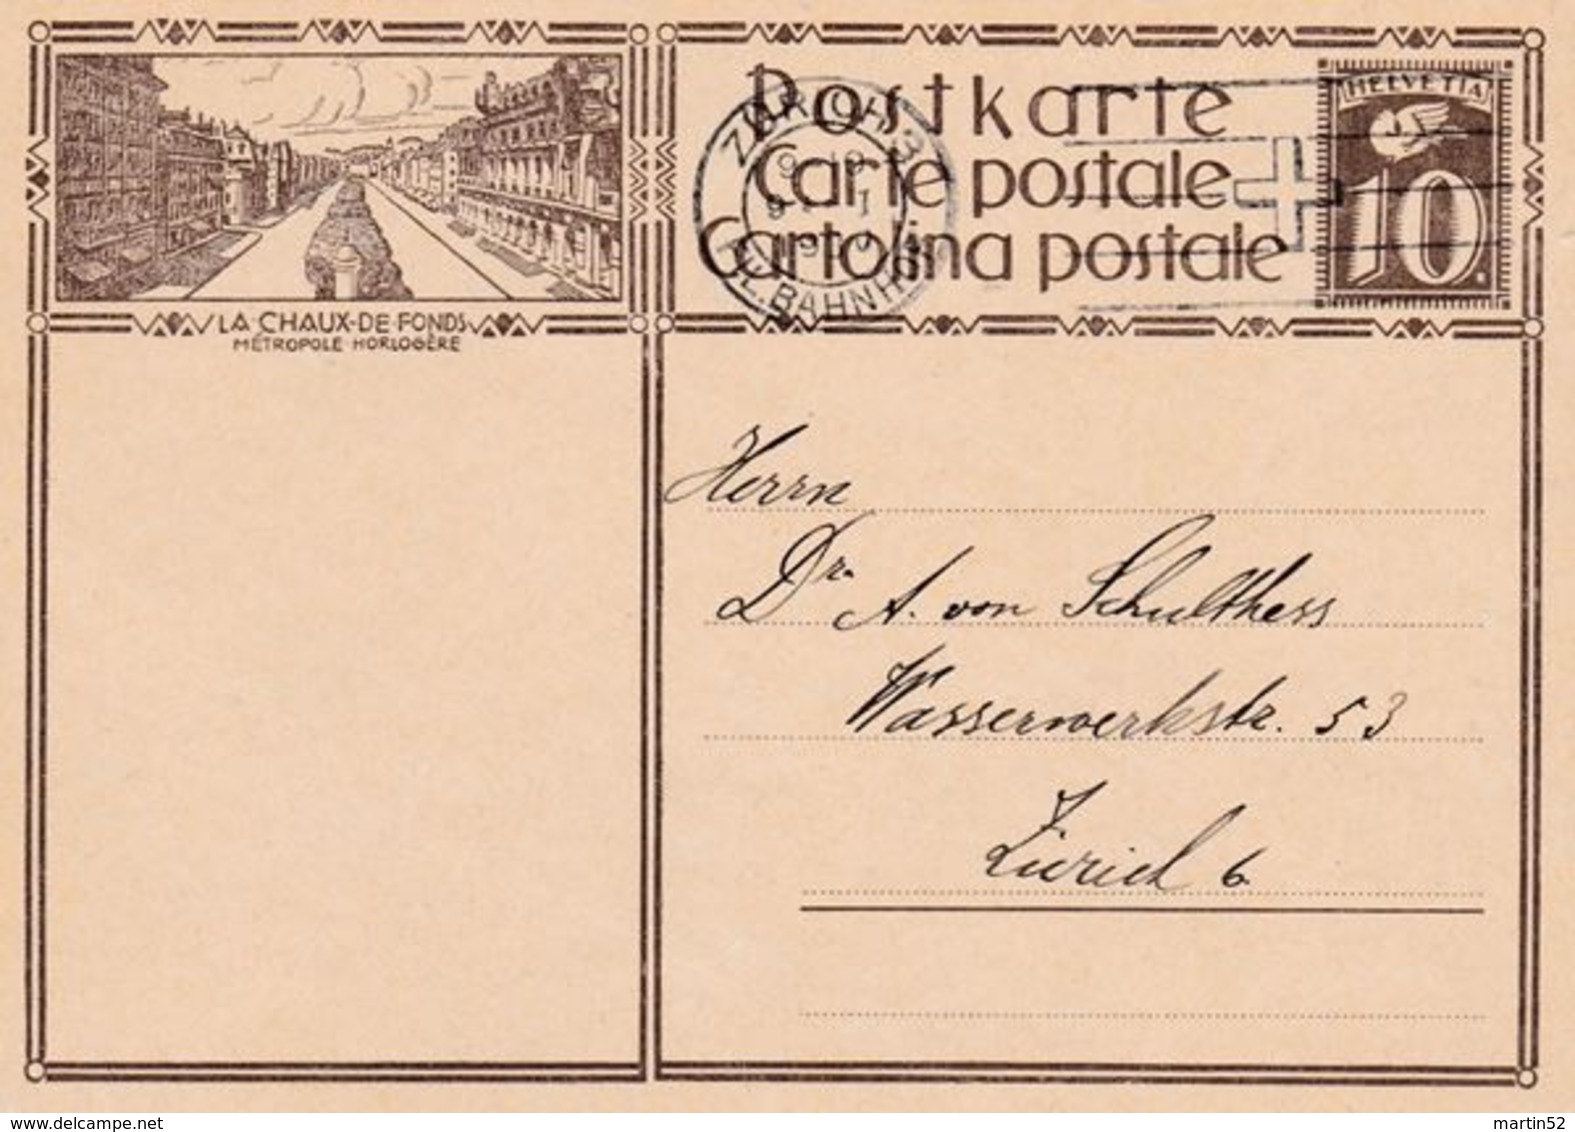 LA CHAUX-DE-FONDS
MÉTROPOLE HORLOGÈRE
Postkarte
Carte postale
Cartolina postale
ZÜRICH
BAHNHOF
HELVETIA
10
Herrn
Dr. A. von Schulthess
Wasserwerkstr. 53
Zürich 6
delcampe.net
martin52